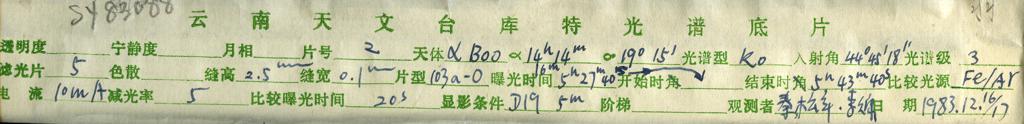 SY83088
云南天文台库特光谱底片
透明度 宁静度 月相 片号 2 天体 α Boo α 14h 14m 19° 15' 光谱型 K0 入射角 44°45'18" 光谱级 3
滤光片 5 色散 缝高 2.5mm 缝宽 0.1mm 片型 103a-O 曝光时间 16m 5h 27m 40s 开始时角 结束时角 5h 43m 40s 比较光源 Fe/Ar
电流 10mA 减光率 5 比较曝光时间 20s 显影条件 D19 5m 阶梯 观测者 日期 1983.12.16/17